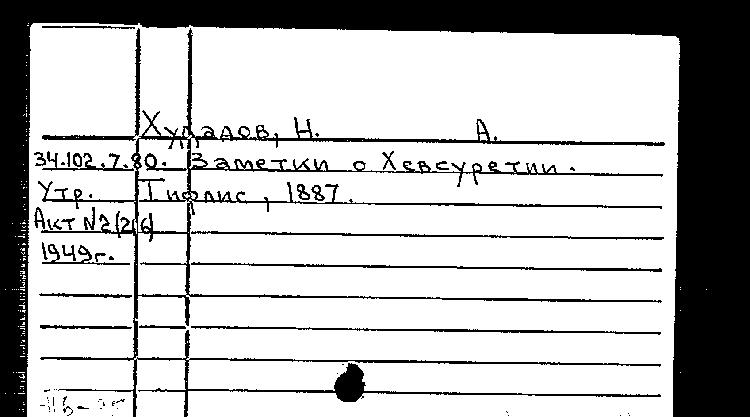 Худадов, Н. А.
34.102.7.80. Заметки о Хевсуретии.
Утр. Тифлис, 1887.
Акт №2(26)
1949г.